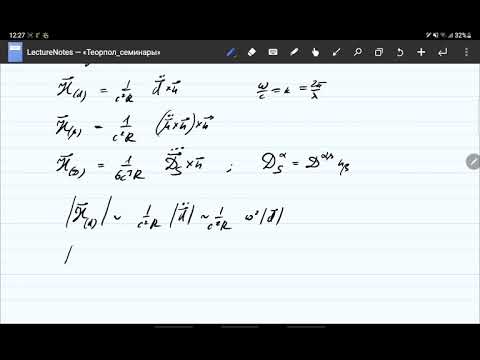 12:27 32%
LectureNotes — «Теорпол_семинары»
H⃗_(d) = 1/(c²R) d⃗̈ × n⃗ ω/c = k = 2π/λ
H⃗_(μ) = 1/(c²R) (μ⃗̈ × n⃗) × n⃗
H⃗_(D) = 1/(6c³R) D⃗⃛_S × n⃗ ; D_S^α = D^{αβ} n_β
|H⃗_(d)| ~ 1/(c²R) |d⃗̈| ~ 1/(c²R) ω² |d⃗|
|